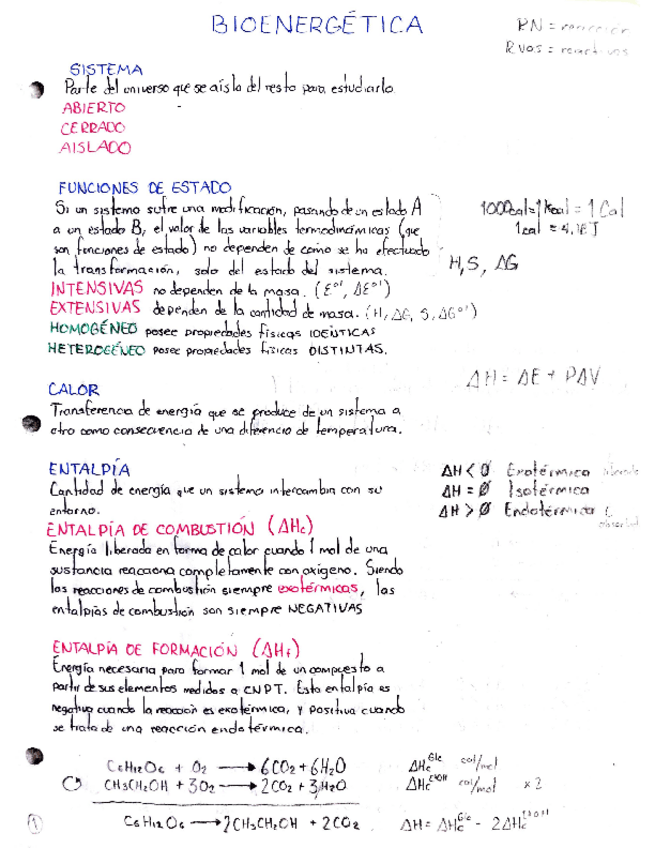 BIOENERGÉTICA
RN = reacción
Rvos = reactivos
SISTEMA
Parte del universo que se aísla del resto para estudiarlo.
ABIERTO
CERRADO
AISLADO
FUNCIONES DE ESTADO
Si un sistema sufre una modificación, pasando de un estado A
a un estado B, el valor de las variables termodinámicas (que
son funciones de estado) no dependen de como se ha efectuado
la transformación, solo del estado del sistema.
1000cal=1Kcal = 1 Cal
1cal = 4,18J
H, S, ΔG
INTENSIVAS no dependen de la masa. (E°', ΔE°')
EXTENSIVAS dependen de la cantidad de masa. (H, ΔG, S, ΔG°')
HOMOGÉNEO posee propiedades físicas IDÉNTICAS
HETEROGÉNEO posee propiedades físicas DISTINTAS.
ΔH = ΔE + PΔV
CALOR
Transferencia de energía que se produce de un sistema a
otro como consecuencia de una diferencia de temperatura.
ENTALPÍA
Cantidad de energía que un sistema intercambia con su
entorno.
ΔH < 0 Exotérmica
ΔH = 0 Isotérmica
ΔH > 0 Endotérmica
ENTALPÍA DE COMBUSTIÓN (ΔHc)
Energía liberada en forma de calor cuando 1 mol de una
sustancia reacciona completamente con oxígeno. Siendo
las reacciones de combustión siempre exotérmicas, las
entalpías de combustión son siempre NEGATIVAS
ENTALPÍA DE FORMACIÓN (ΔHf)
Energía necesaria para formar 1 mol de un compuesto a
partir de sus elementos medidos a CNPT. Esta entalpía es
negativa cuando la reacción es exotérmica, y positiva cuando
se trata de una reacción endotérmica.
C6H12O6 + O2 → 6CO2 + 6H2O ΔHc Glc cal/mol
CH3CH2OH + 3O2 → 2CO2 + 3H2O ΔHc EtOH cal/mol x 2
C6H12O6 → 2CH3CH2OH + 2CO2 ΔH = ΔHc Glc - 2ΔHc EtOH
1